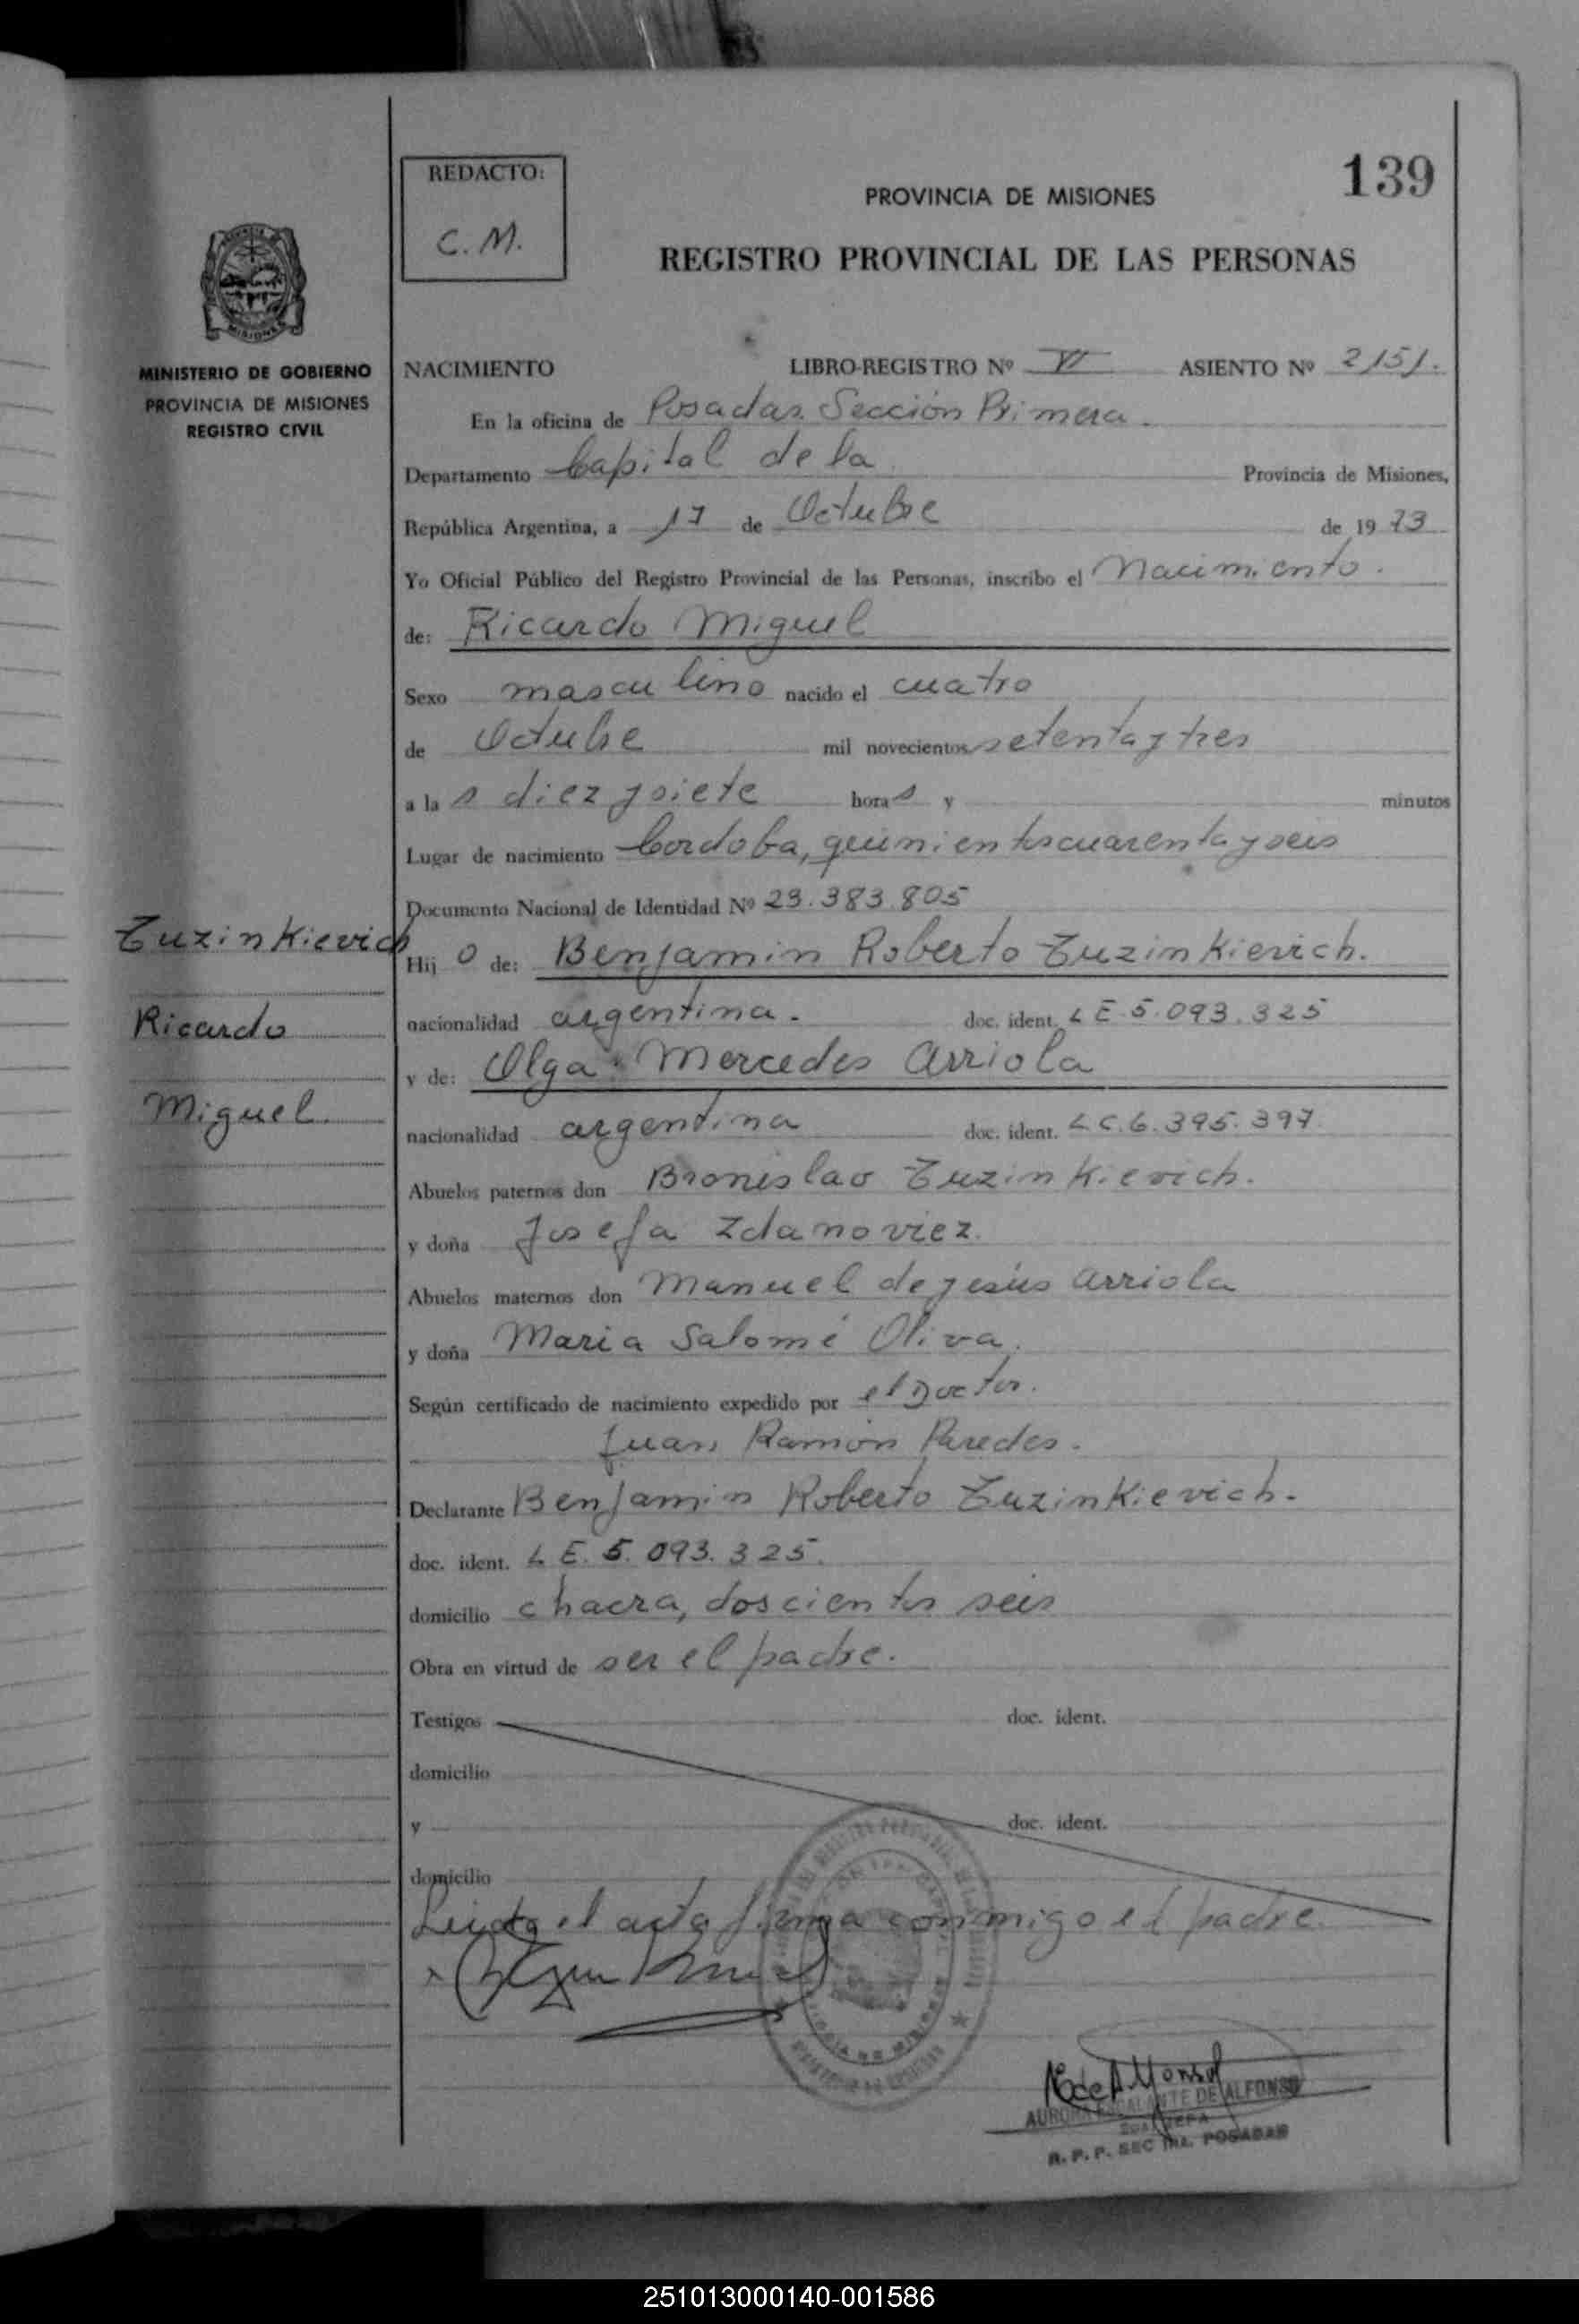 139
REDACTO:
C. M.
PROVINCIA DE MISIONES
REGISTRO PROVINCIAL DE LAS PERSONAS
MISIONES
MINISTERIO DE GOBIERNO
PROVINCIA DE MISIONES
REGISTRO CIVIL
NACIMIENTO LIBRO-REGISTRO Nº VI ASIENTO Nº 2151.
En la oficina de Posadas Sección Primera.
Departamento Capital de la Provincia de Misiones,
República Argentina, a 17 de Octubre de 1973
Yo Oficial Público del Registro Provincial de las Personas, inscribo el Nacimiento.
de: Ricardo Miguel
Sexo masculino nacido el cuatro
de Octubre mil novecientos setenta y tres
a la s diez y siete hora s y minutos
Lugar de nacimiento Cordoba, quinientos cuarenta y seis
Documento Nacional de Identidad Nº 23.383.805
Tuzinkievich
Hij o de: Benjamin Roberto Tuzinkievich.
nacionalidad argentina. doc. ident. L E 5.093.325
Ricardo
y de: Olga Mercedes Arriola
Miguel
nacionalidad argentina doc. ident. L C. 6.395.397
Abuelos paternos don Bronislao Tuzinkievich.
y doña Josefa Zdanoviez.
Abuelos maternos don Manuel de jesús Arriola
y doña Maria Salomé Oliva.
Según certificado de nacimiento expedido por el Doctor.
Juan Ramón Paredes.
Declarante Benjamin Roberto Tuzinkievich.
doc. ident. L E. 5.093.325.
domicilio chacra, doscientos seis
Obra en virtud de ser el padre.
Testigos doc. ident.
domicilio
y doc. ident.
domicilio
Leida el acta firma conmigo el padre.
AURORA ESCALANTE DE ALFONSO
R. P. P. SEC 1RA. POSADAS
251013000140-001586